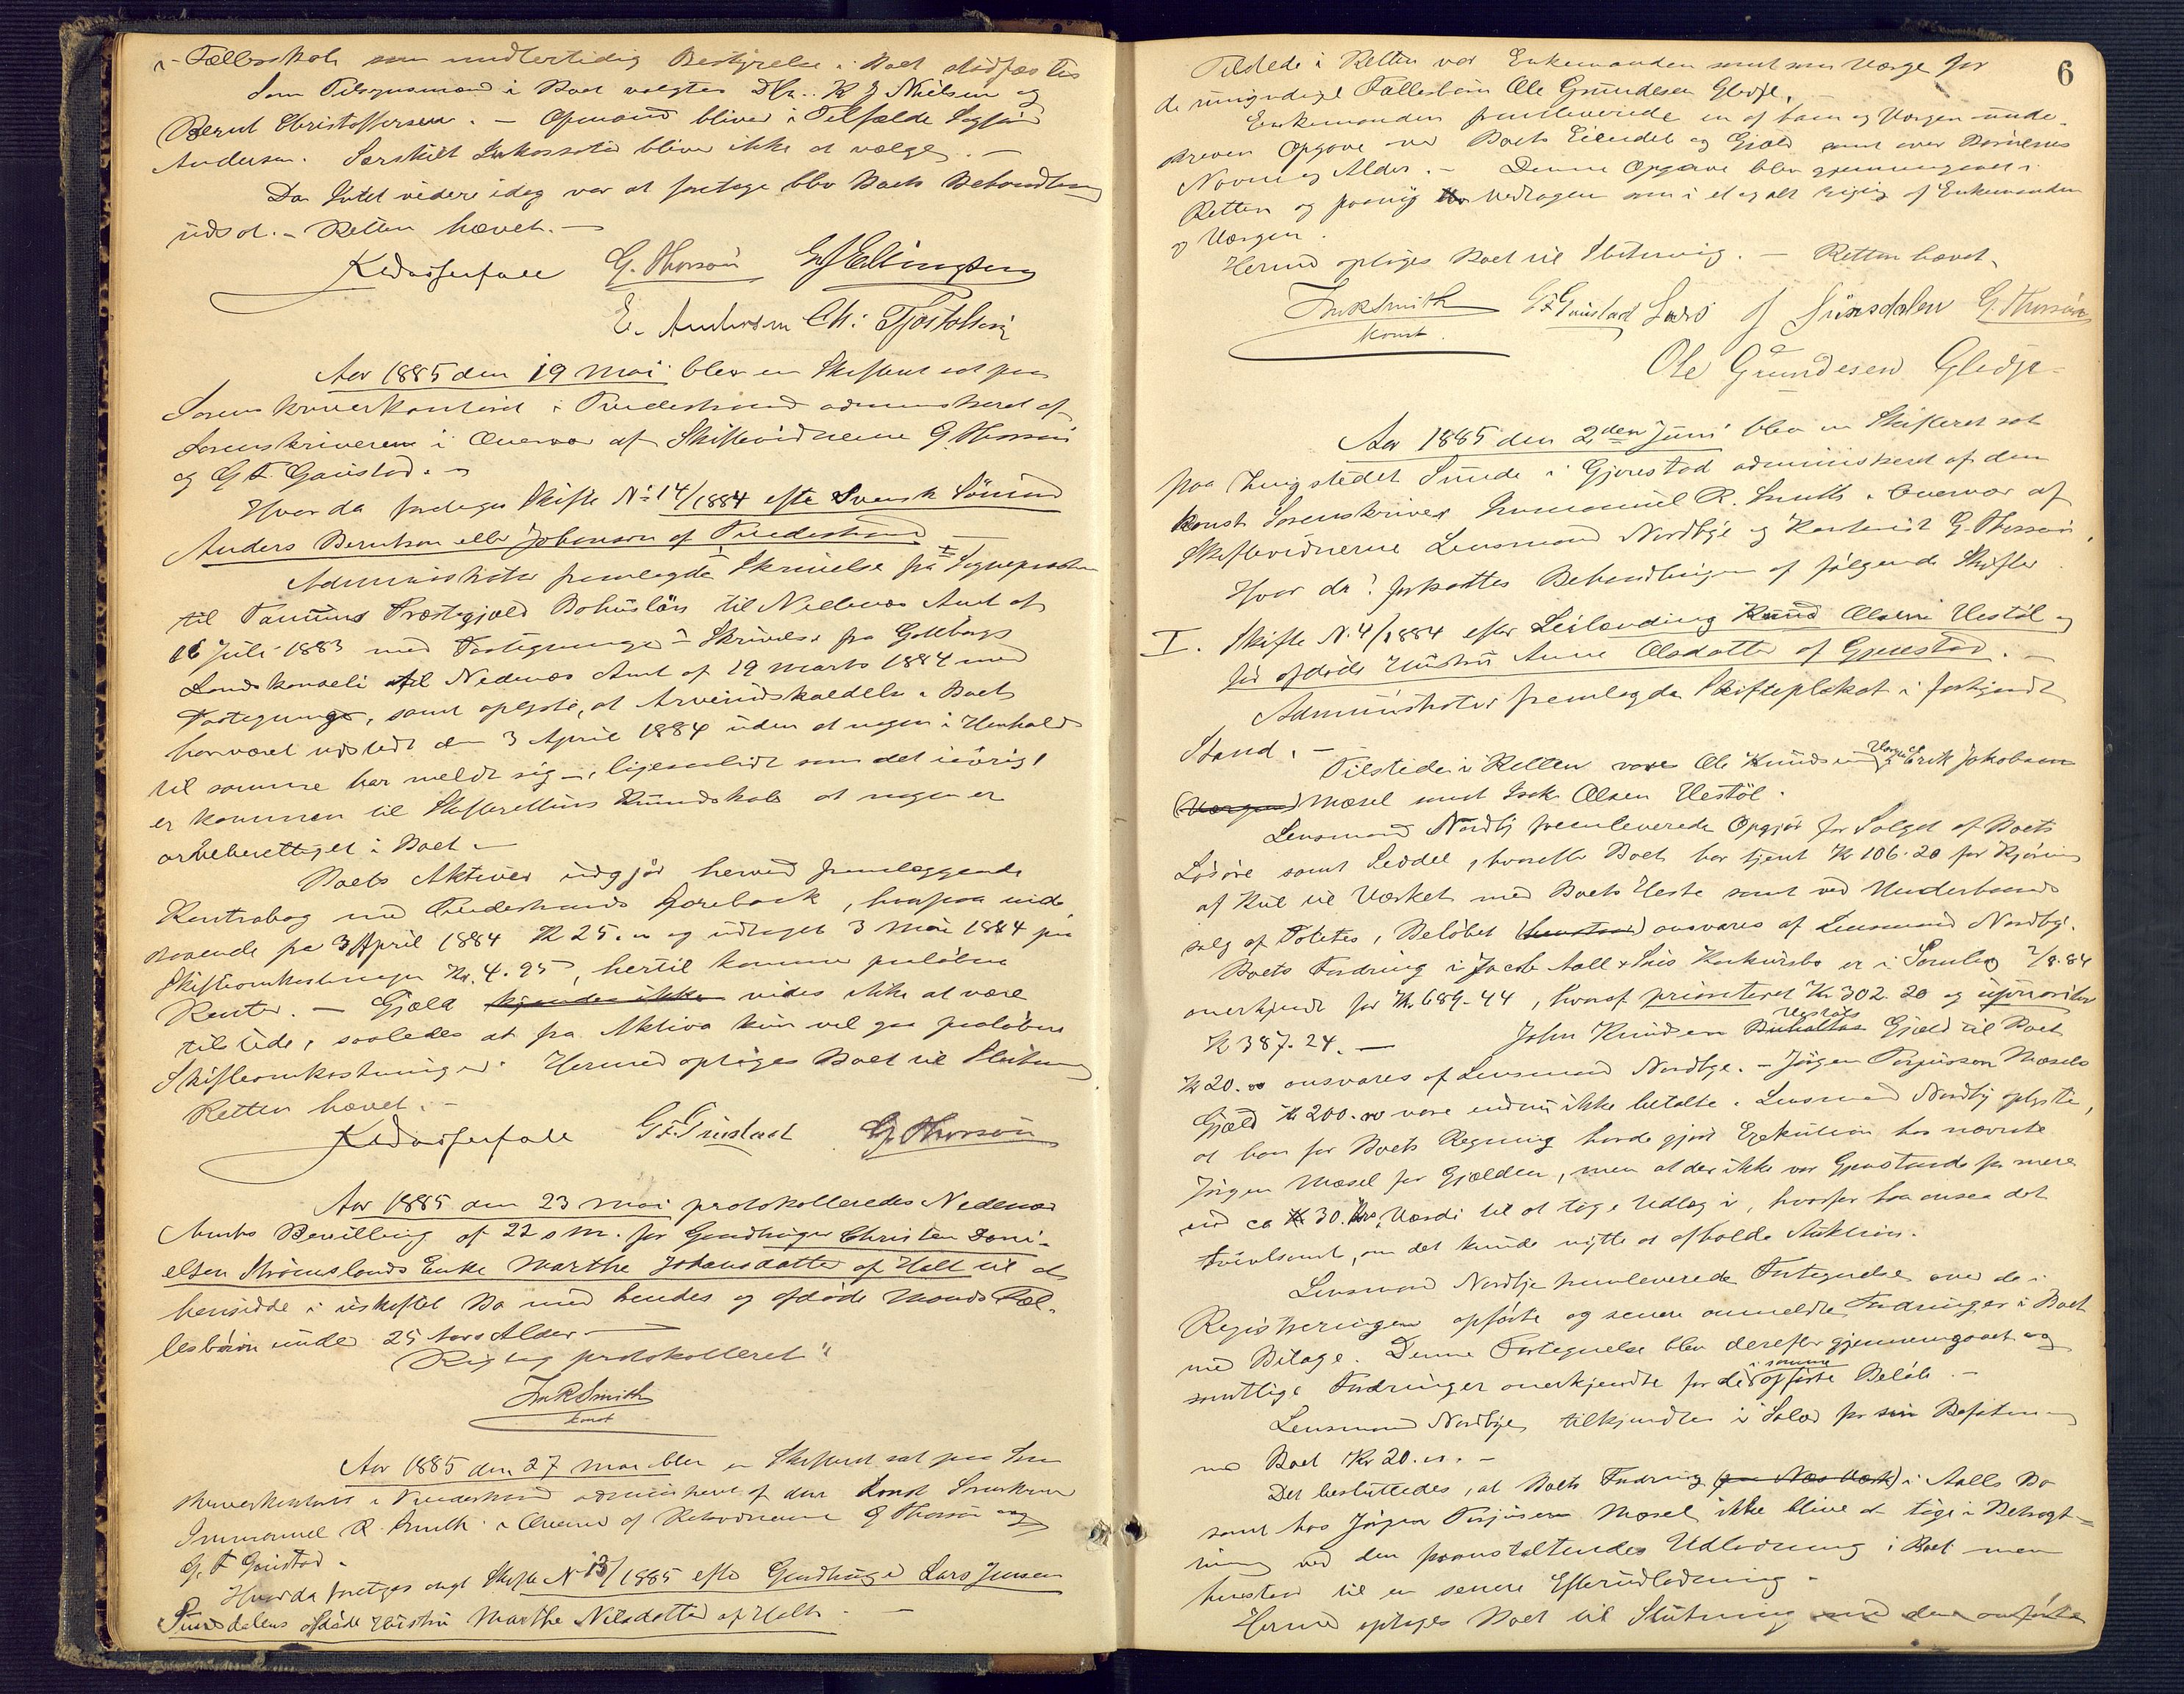 i Fællesskab som midlertidig Bestyrelse i Boet stadfæstes
Som Tilsynsmænd i Boet valgtes DHr. K J Nielsen og
Bernt Christoffersen. – Opmand bliver i Tilfælde Sagfører
Andersen. Særskilt Inkassator bliver ikke at vælge. –
Da Intet videre idag var at foretage blev Boets Behandling
udsat. – Retten hævet. –
G. Thorsøn G J Ellingsen
E. Andersen Ch: Tjostolfsen
Aar 1885 den 19 Mai blev en Skifteret sat paa
Sorenskriverkontoret i Tvedestrand administreret af
Sorenskriveren i Overvær af Skiftevidnerne G. Thorsøn
og G F. Grimstad. –
Hvor da foretages Skifte No 14/1884 efter Svensk Sømand
Anders Berntson eller Johanson af Tvedestrand –
Administrator fremlagde Skrivelse fra Sognepresten
til Tanums Præstegjeld Bohuslän til Nedenæs Amt af
16 Juli 1883 med Paategninger – Skrivelse fra Gøteborgs
Landskansli til Nedenæs Amt af 19 Marts 1884 med
Paategninger, samt oplyste, at Arveindkaldelse i Boet
har været udstedt den 3 April 1884 uden at nogen i Henhold
til samme har meldt sig –, ligesaalidt som det iøvrigt
er kommen til Skifterettens Kundskab at nogen er
arveberettiget i Boet –
Boets Aktiver udgjør herved fremlæggende
Kontrabog med Tvedestrands Sparebank, hvorpaa inde
staaende fra 3 April 1884 Kr 25. " og udtaget 3 Mai 1884 paa
Skifteomkostninger Kr. 4.95, hertil kommer paaløbne
Renter. – Gjæld kjendes ikke vides ikke at være
tilstede, saaledes at fra Aktiva kun vil gaa paaløbne
Skifteomkostninger. Hermed optages Boet til Slutning
Retten hævet. –
G F. Grimstad G. Thorsøn
Aar 1885 den 23 Mai protokolleredes Nedenæs
Amts Bevilling af 22 s M. for Gaardbruger Christen Dani-
elsen Strømslands Enke Marthe Johansdatter af Holt til at
hensidde i uskiftet Bo med hendes og afdøde Mands Fæl-
lesbørn under 25 Aars Alder –
Rigtig protokolleret "
ImRSmith
konst
Aar 1885 den 27 Mai blev en Skifteret sat paa Soren
skriverkontoret i Tvedestrand administreret af den konst Sorenskriver
Immanuel R. Smith i Overvær af Retsvidnerne G Thorsøn og
G. F Grimstad –
Hvor da foretoges angt Skifte No 13/1885 efter Gaardbruger Lars Jensen
Sunesdalens afdøde Hustru Marthe Nilsdatter af Holt. –
6
Tilstede i Retten var Enkemanden samt som Værge for
de umyndige Fællesbørn Ole Gundesen Gledje.
Enkemanden fremleverede en af ham og Værgen under-
skreven Opgave over Boets Eiendele og Gjæld samt over Børnenes
Navne og Alder. – Denne Opgave blev gjennemgaaet i
Retten og paany vedtagen som i et og alt rigtig af Enkemanden
og Værgen.
Hermed optages Boet til Slutning. – Retten hævet.
ImRSmith G F Grimstad Lars J Sunsdalen G. Thorsøn
konst.
Ole Gundesen Gledje
Aar 1885 den 2den Juni blev en Skifteret sat
paa Thingstedet Sunde i Gjerestad administreret af den
konst. Sorenskriver Immanuel R. Smith i Overvær af
Skiftevidnerne Lensmand Nordbye og Kontorist G. Thorsøn.
Hvor da: fortsattes Behandlingen af følgende Skifter
I. Skifte N. 4/1884 efter Leilænding Knud Olsen Vestøl og
før afdøde Hustru Anne Olsdatter af Gjerestad. –
Administrator fremlagde Skifteplakat i forkyndt
Stand. –
Tilstede i Retten vare Ole Knudsen Værge Erik Jakobsen
(Værgen) Mæsel samt Isak Olsen Vestøl.
Lensmand Nordby fremleverede Opgjør for Salget af Boets
Løsøre samt Seddel, hvorefter Boet har tjent Kr 106.20 for Kjøring
af Kul til Værket med Boets Heste samt ved Underhaands
salg af Potetes, Beløbet ansvares af Lensmand Nordby.
Boets Fordring i Jacob Aall & Søns Konkursbo er i Samling 7/8.84
anerkjendt for Kr. 689.44, hvoraf prioriteret Kr 302.20 og uprioriteret
K 387.24. – John Knudsen Vestøls Gjæld til Boet
K 20.00 ansvares af Lensmand Nordbye. – Jørgen Torjussen Mæsels
Gjæld Kr 200.00 vare endnu ikke betalte. Lensmand Nordby oplyste,
at han for Boets Regning havde gjort Exekution hos nævnte
Jørgen Mæsel for Gjælden, men at der ikke var Gjenstande for mere
end ca Kr 30. Værdi til at tage Udlæg i, hvorfor han ansaa det
tvivlsomt, om det kunde nytte at afholde Auktion.
Lensmand Nordbye fremleverede Fortegnelse over de i
Registreringen opførte og senere anmeldte Fordringer i Boet
med Bilage. Denne Fortegnelse blev derefter gjennemgaaet og
samtlige Fordringer anerkjendte for de i samme opførte Beløb. –
Lensmand Nordbye tilkjendtes i Salær for sin Befatning
med Boet Kr 20.00. –
Det besluttedes, at Boets Fordring (paa Næs Værk) i Aalls Bo
samt hos Jørgen Torjusen Mæsel ikke blive at tage i Betragt-
ning ved den forestaaende Udlodning i Boet men
henstaa til en senere Efterudlodning –
Hermed optages Boet til Slutning med den anførte